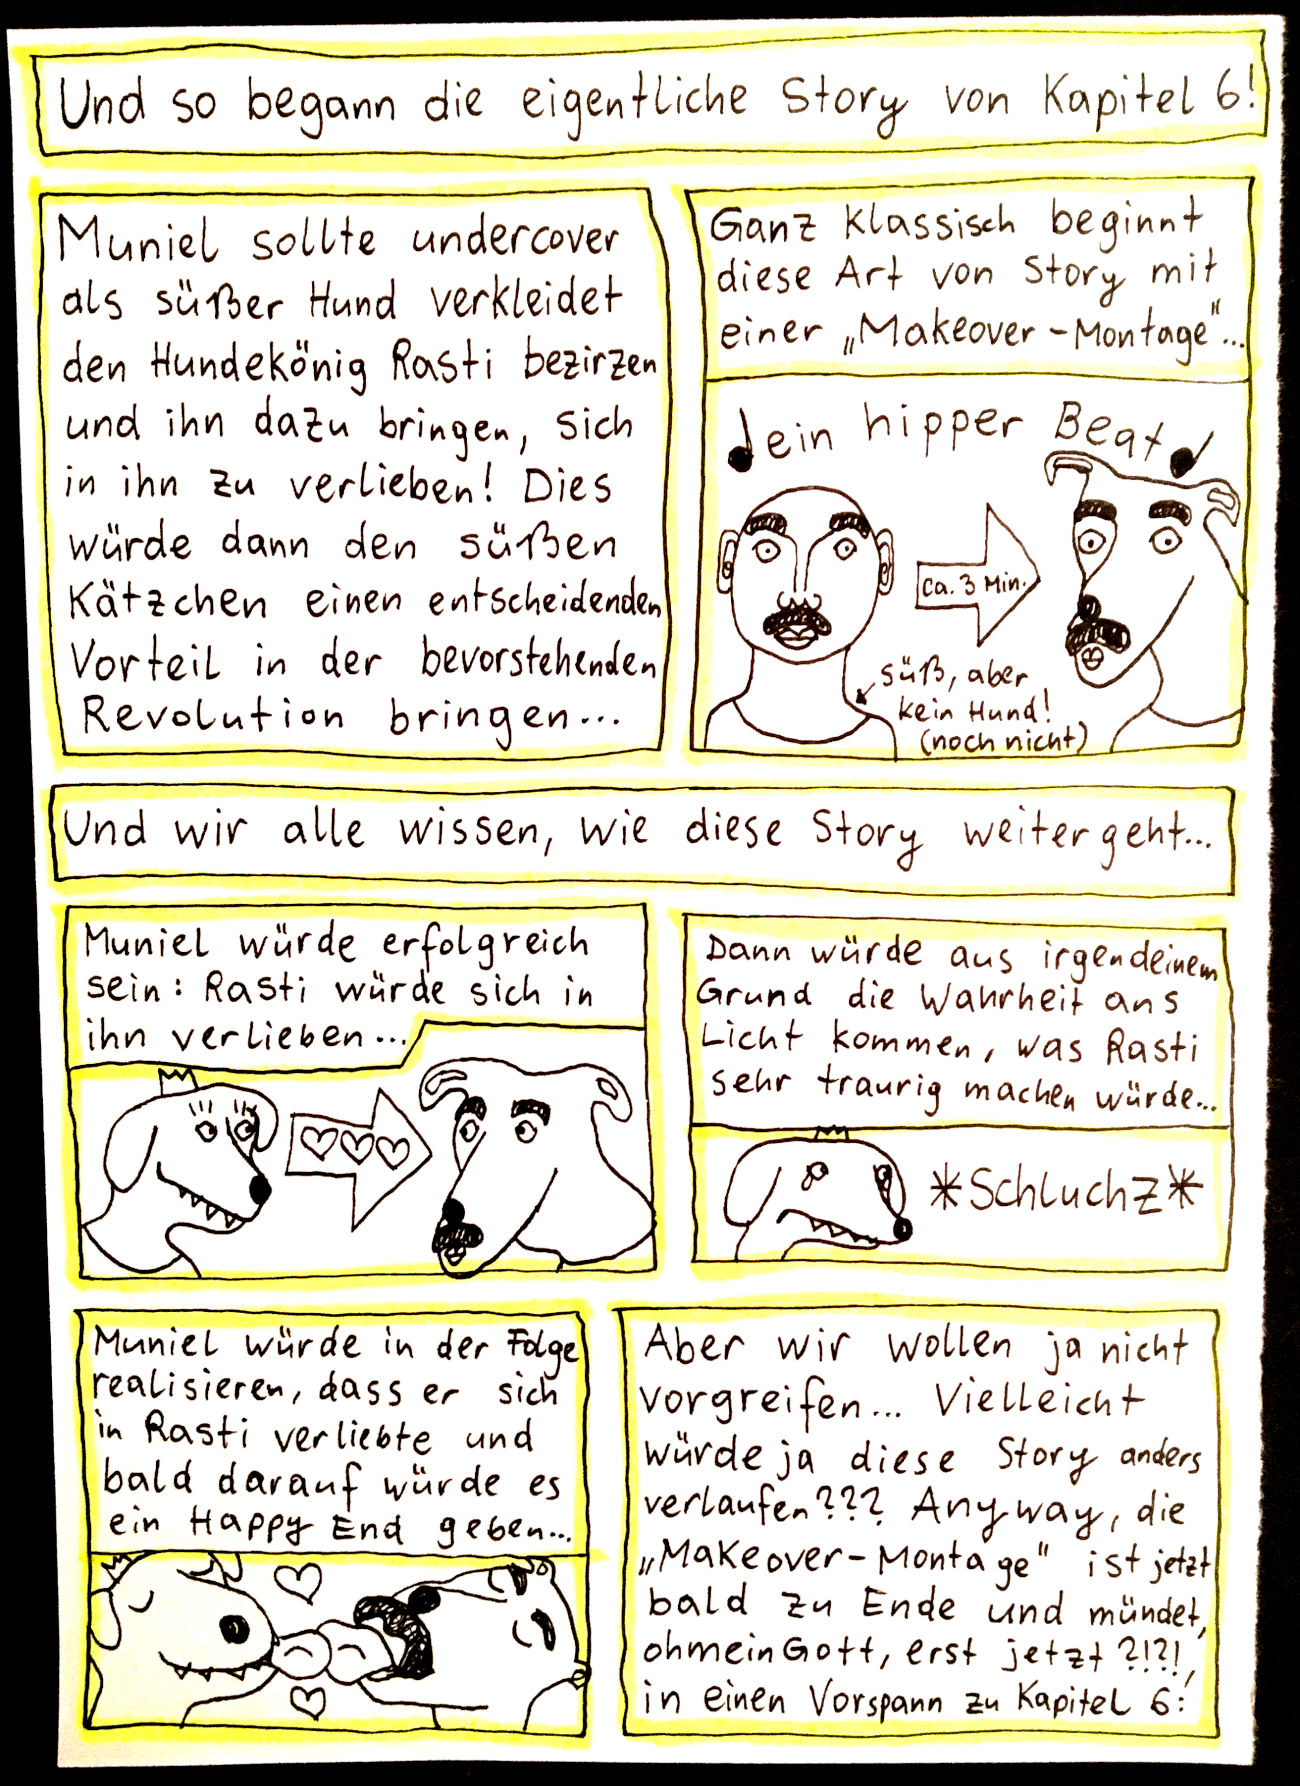 Und so begann die eigentliche Story von Kapitel 6!
Muniel sollte undercover
als süßer Hund verkleidet
den Hundekönig Rasti bezirzen
und ihn dazu bringen, sich
in ihn zu verlieben! Dies
würde dann den süßen
Kätzchen einen entscheidenden
Vorteil in der bevorstehenden
Revolution bringen...
Ganz klassisch beginnt
diese Art von Story mit
einer „Makeover-Montage"...
ein hipper Beat
ca. 3 Min.
süß, aber
kein Hund!
(noch nicht)
Und wir alle wissen, wie diese Story weitergeht...
Muniel würde erfolgreich
sein: Rasti würde sich in
ihn verlieben...
Dann würde aus irgendeinem
Grund die Wahrheit ans
Licht kommen, was Rasti
sehr traurig machen würde...
*Schluchz*
Muniel würde in der Folge
realisieren, dass er sich
in Rasti verliebte und
bald darauf würde es
ein Happy End geben...
Aber wir wollen ja nicht
vorgreifen... Vielleicht
würde ja diese Story anders
verlaufen??? Anyway, die
„Makeover-Montage" ist jetzt
bald zu Ende und mündet,
ohmeinGott, erst jetzt?!?!,
in einen Vorspann zu Kapitel 6: